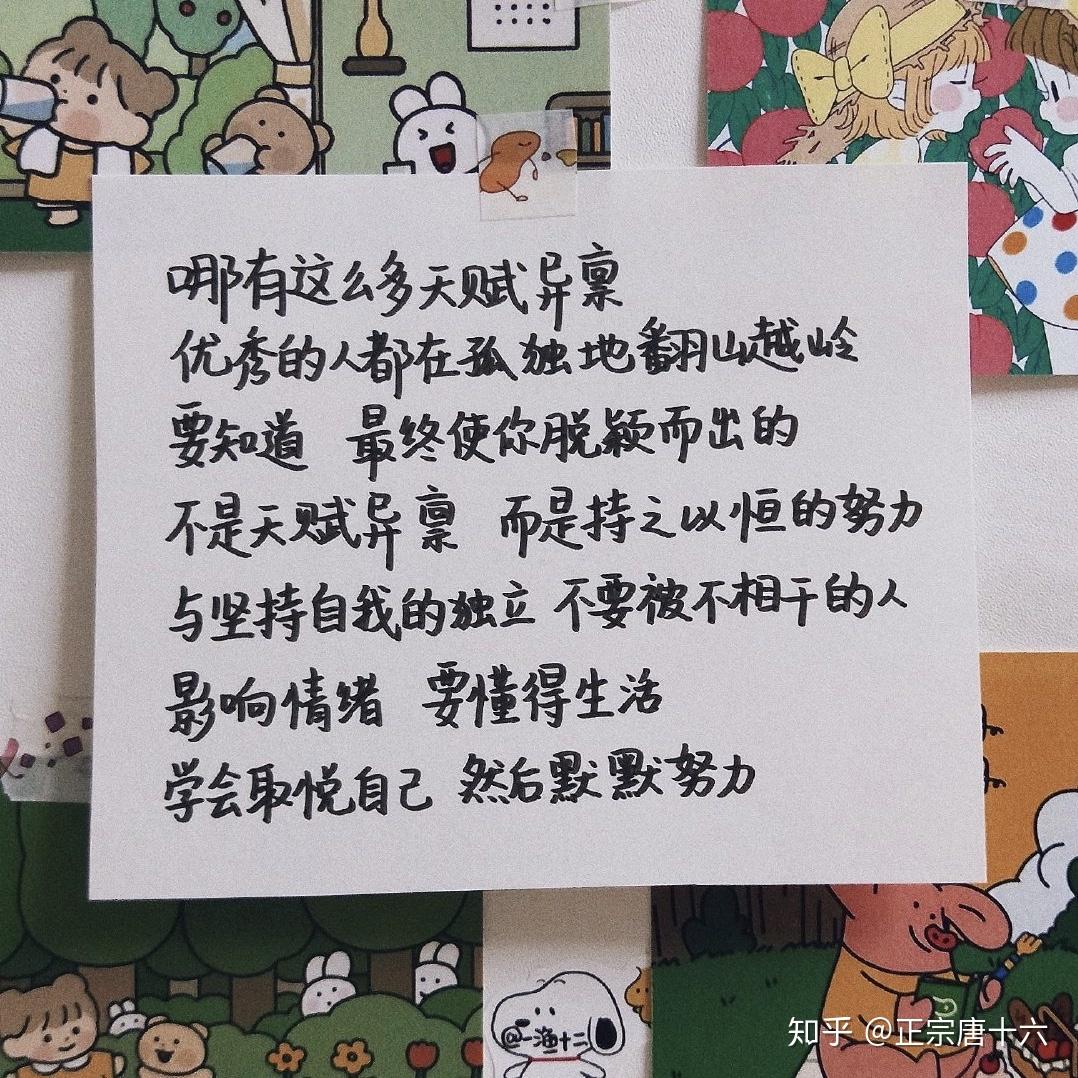 哪有这么多天赋异禀
优秀的人都在孤独地翻山越岭
要知道 最终使你脱颖而出的
不是天赋异禀 而是持之以恒的努力
与坚持自我的独立 不要被不相干的人
影响情绪 要懂得生活
学会取悦自己 然后默默努力
@一渔十二
知乎 @正宗唐十六